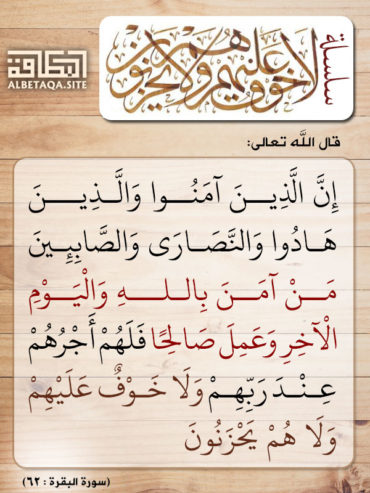 البطاقة
ALBETAQA.SITE
سلسلة
لا خوف عليهم ولا هم يحزنون
قال الله تعالى:
إِنَّ الَّذِينَ آمَنُوا وَالَّذِينَ
هَادُوا وَالنَّصَارَى وَالصَّابِئِينَ
مَنْ آمَنَ بِاللهِ وَالْيَوْمِ
الْآخِرِ وَعَمِلَ صَالِحًا فَلَهُمْ أَجْرُهُمْ
عِنْدَ رَبِّهِمْ وَلَا خَوْفٌ عَلَيْهِمْ
وَلَا هُمْ يَحْزَنُونَ
(سورة البقرة : ٦٢)